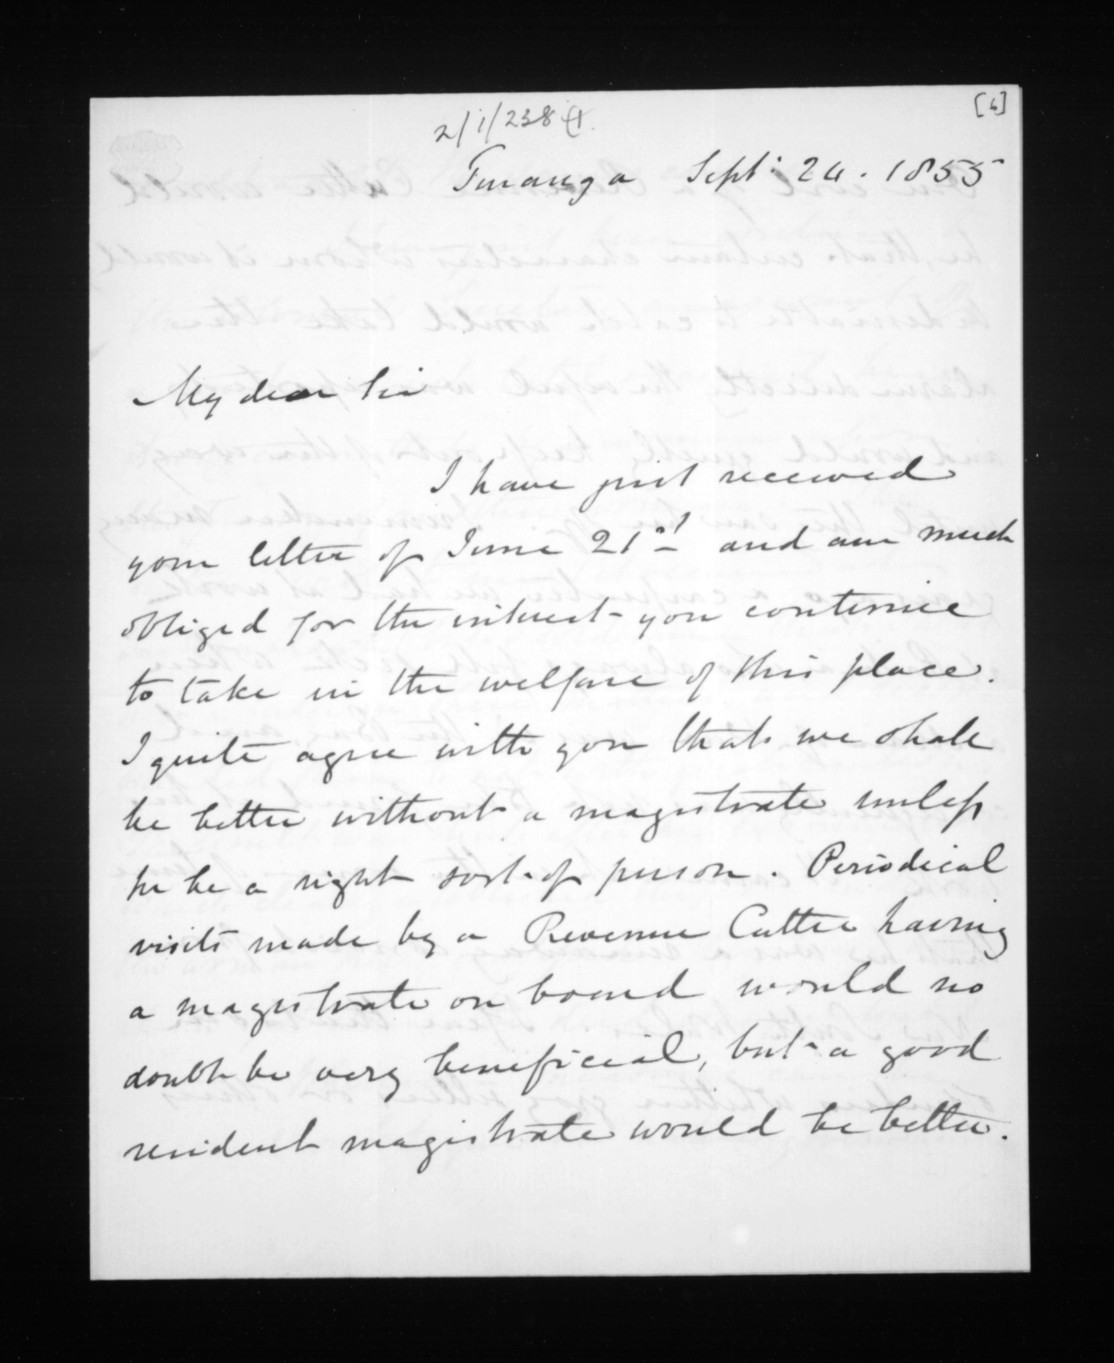 [4]
2/1/238
Turanga Sept. 24. 1855
My dear Sir
I have just received
your letter of June 21st and am much
obliged for the interest you continue
to take in the welfare of this place.
I quite agree with you that we shall
be better without a magistrate unless
he be a right sort of person. Periodical
visits made by a Revenue Cutter having
a magistrate on board would no
doubt be very beneficial, but a good
resident magistrate would be better.